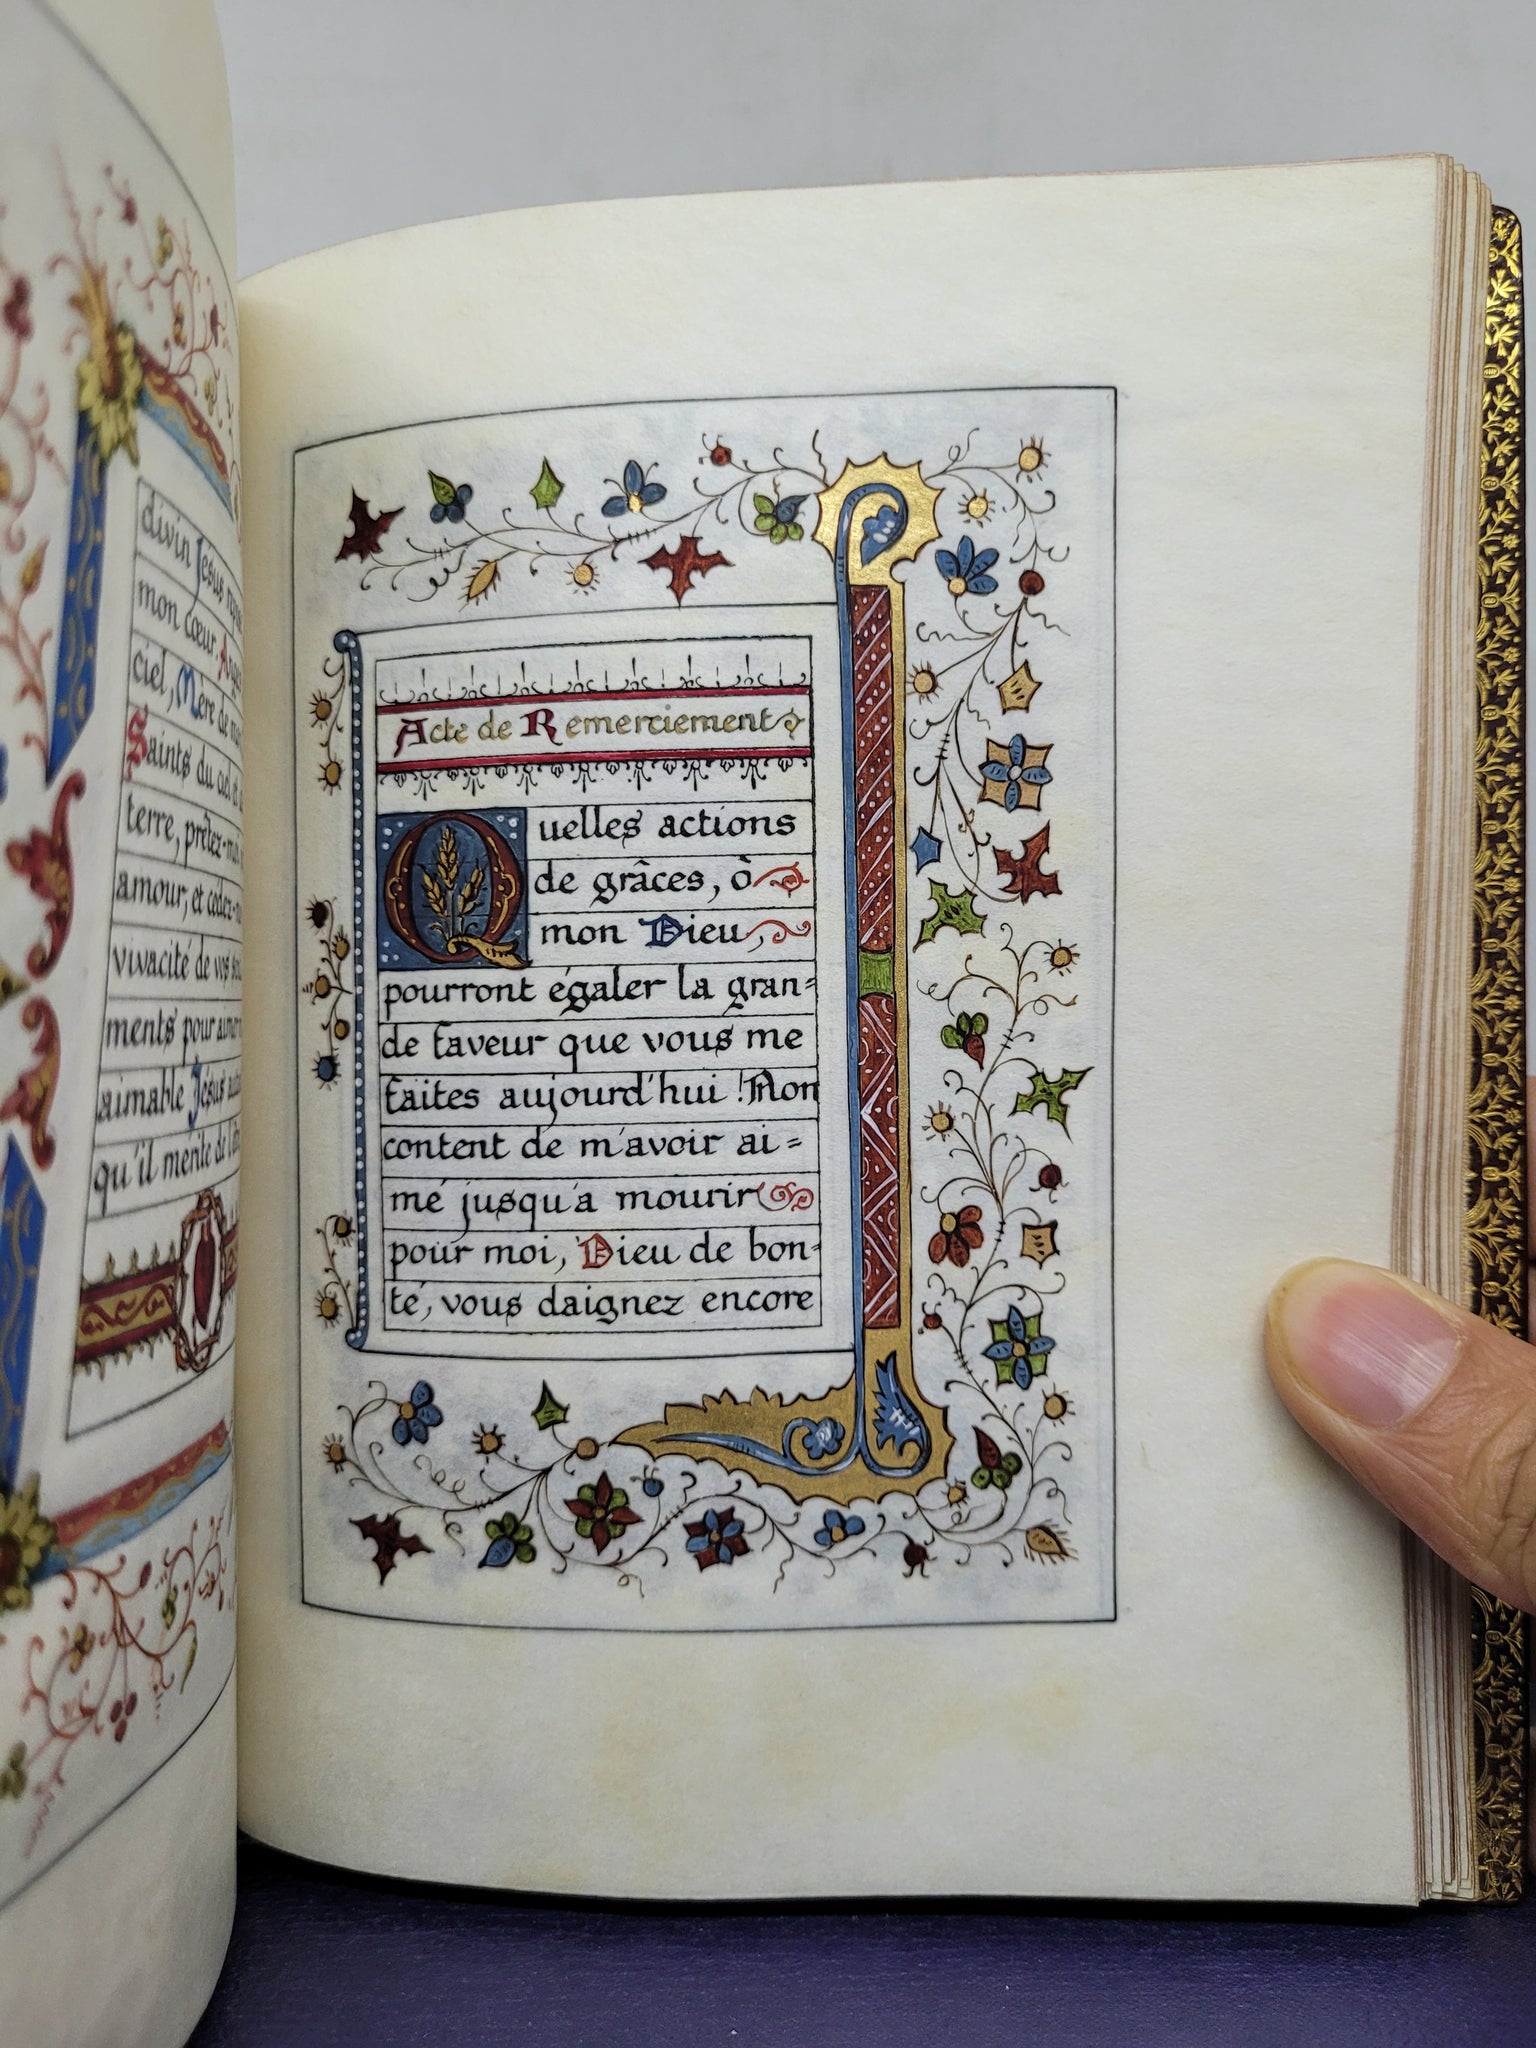 divin Jésus
mon cœur.
ciel, Mère de
Saints du ciel et
terre, prêtez-moi
amour, et cédez-
vivacité de vos
ments pour aimer
aimable Jésus
qu'il mérite de
Acte de Remerciement
Quelles actions
de grâces, ò
mon Dieu,
pourront égaler la gran=
de faveur que vous me
faites aujourd'hui ! Non
content de m'avoir ai=
mé jusqu'a mourir
pour moi, Dieu de bon-
té, vous daignez encore